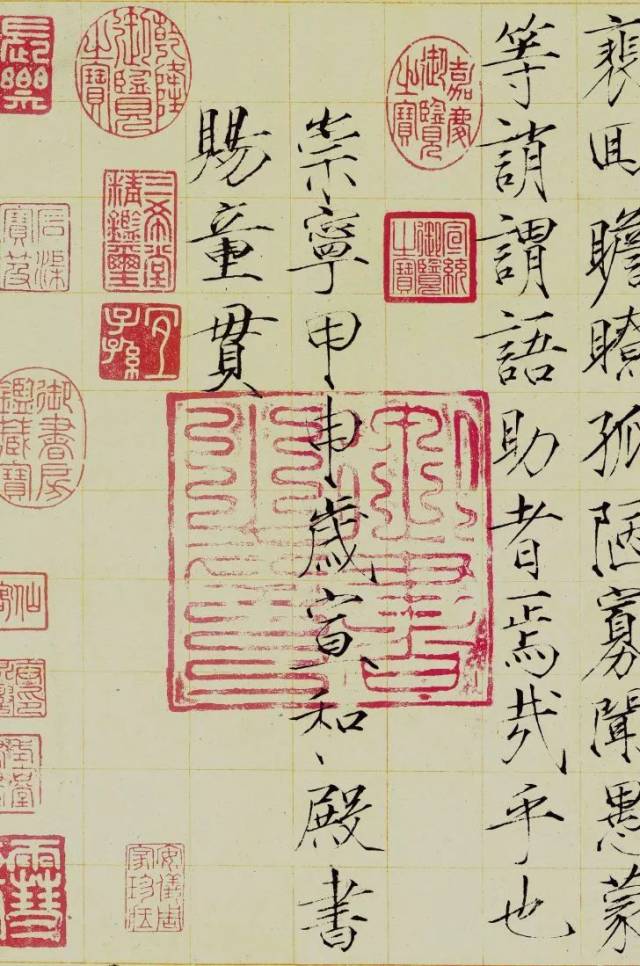 裵囘瞻瞭孤陋寡聞愚蒙
等誚謂語助者焉哉乎也
嘉慶御覽之寶
宣統御覽之寶
崇寧甲申歲宣和殿書
賜童貫
乾隆御覽之寶
三希堂精鑑璽
宜子孫
安儀周家珍藏
長樂
石渠寶笈
御書房鑑藏寶